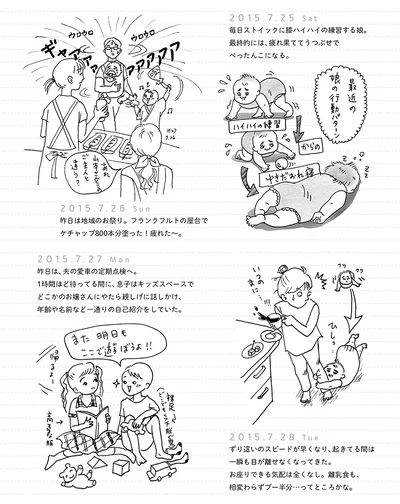 2015.7.25 Sat
毎日ストイックに膝ハイハイの練習する娘。
最終的には、疲れ果ててうつぶせで
ぺったんこになる。
最近の
娘の行動パターン
ハイハイの練習
からの
ゆきだおれ寝
ウロウロ
ウロウロ
ギャアアア
アアアア
2015.7.26 Sun
昨日は地域のお祭り。フランクフルトの屋台で
ケチャップ800本分塗った!疲れた〜。
2015.7.27 Mon
昨日は、夫の愛車の定期点検へ。
1時間ほど待ってる間に、息子はキッズスペースで
どこかのお嬢さんにやたら親しげに話しかけ、
年齢や名前など一通りの自己紹介をしていた。
また明日も
ここで遊ぼうよ!!
いつのまに…
ひしっ
2015.7.28 Tue
ずり這いのスピードが早くなり、起きてる間は
一瞬も目が離せなくなってきた。
お座りできる気配は全くなし。離乳食も、
相変わらずブー半分…ってところかな。